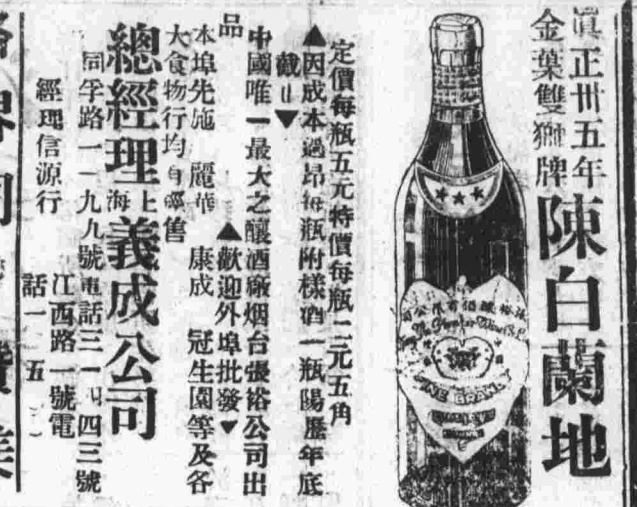 眞正卅五年
金葉雙獅牌
陳白蘭地
FINE BRANDY
定價每瓶五元特價每瓶二元五角
▲因成本過昂每瓶附樣酒一瓶陽歷年底
截止▼
中國唯一最大之釀酒廠烟台張裕公司出
品
▲歡迎外埠批發▼
本埠先施 麗華 康成 冠生園等及各
大食物行均有經售
總經理上海義成公司
同孚路一一九九號電話三一四四三號
經理信源行
江西路一號電
話一